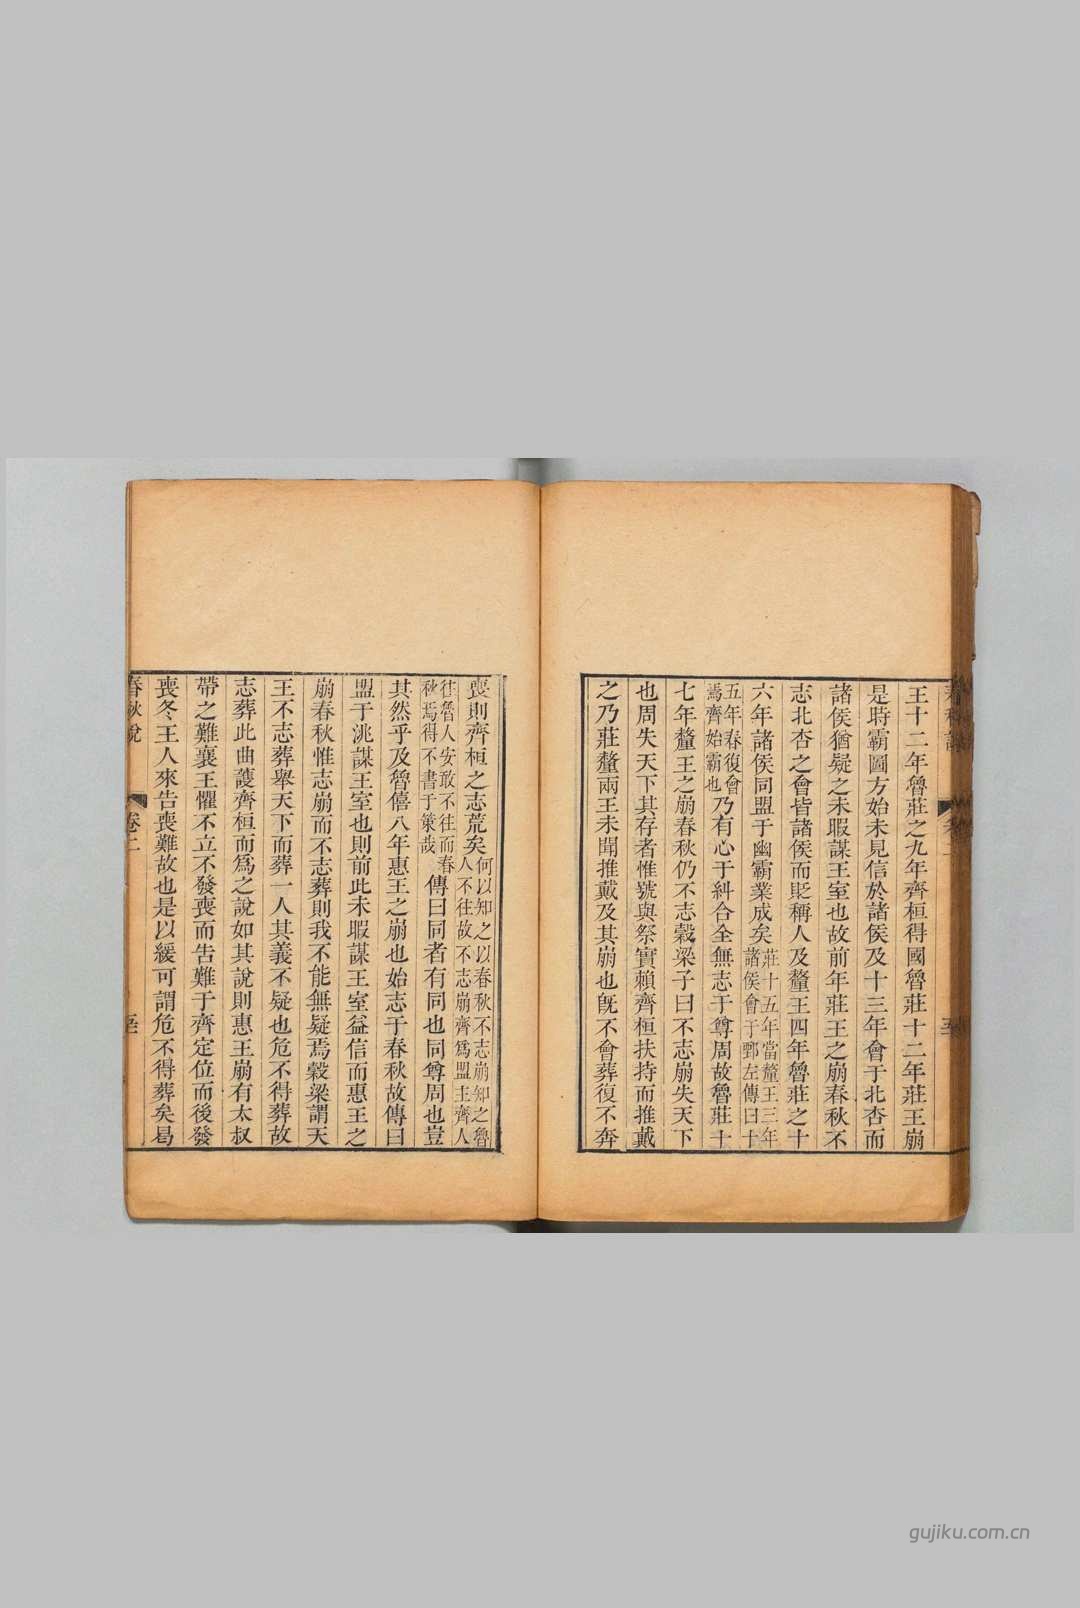 王十二年魯莊之九年齊桓得國魯莊十二年莊王崩
是時霸圖方始未見信於諸侯及十三年會于北杏而
諸侯猶疑之未暇謀王室也故前年莊王之崩春秋不
志北杏之會皆諸侯而貶稱人及釐王四年魯莊之十
六年諸侯同盟于幽霸業成矣莊十五年當釐王三年諸侯會于鄄左傳曰十
五年春復會焉齊始霸也乃有心于糾合全無志于尊周故魯莊十
七年釐王之崩春秋仍不志穀梁子曰不志崩失天下
也周失天下其存者惟號與祭實賴齊桓扶持而推戴
之乃莊釐兩王未聞推戴及其崩也旣不會葬復不奔
喪則齊桓之志荒矣何以知之以春秋不志崩知之魯人不往故不志崩齊爲盟主齊人
往魯人安敢不往而春秋焉得不書于策哉傳曰同者有同也同尊周也豈
其然乎及魯僖八年惠王之崩也始志于春秋故傳曰
盟于洮謀王室也則前此未暇謀王室益信而惠王之
崩春秋惟志崩而不志葬則我不能無疑焉穀梁謂天
王不志葬舉天下而葬一人其義不疑也危不得葬故
志葬此曲護齊桓而爲之說如其說則惠王崩有太叔
帶之難襄王懼不立不發喪而告難于齊定位而後發
喪冬王人來告喪難故也是以緩可謂危不得葬矣曷
春秋說
卷二
gujiku.com.cn